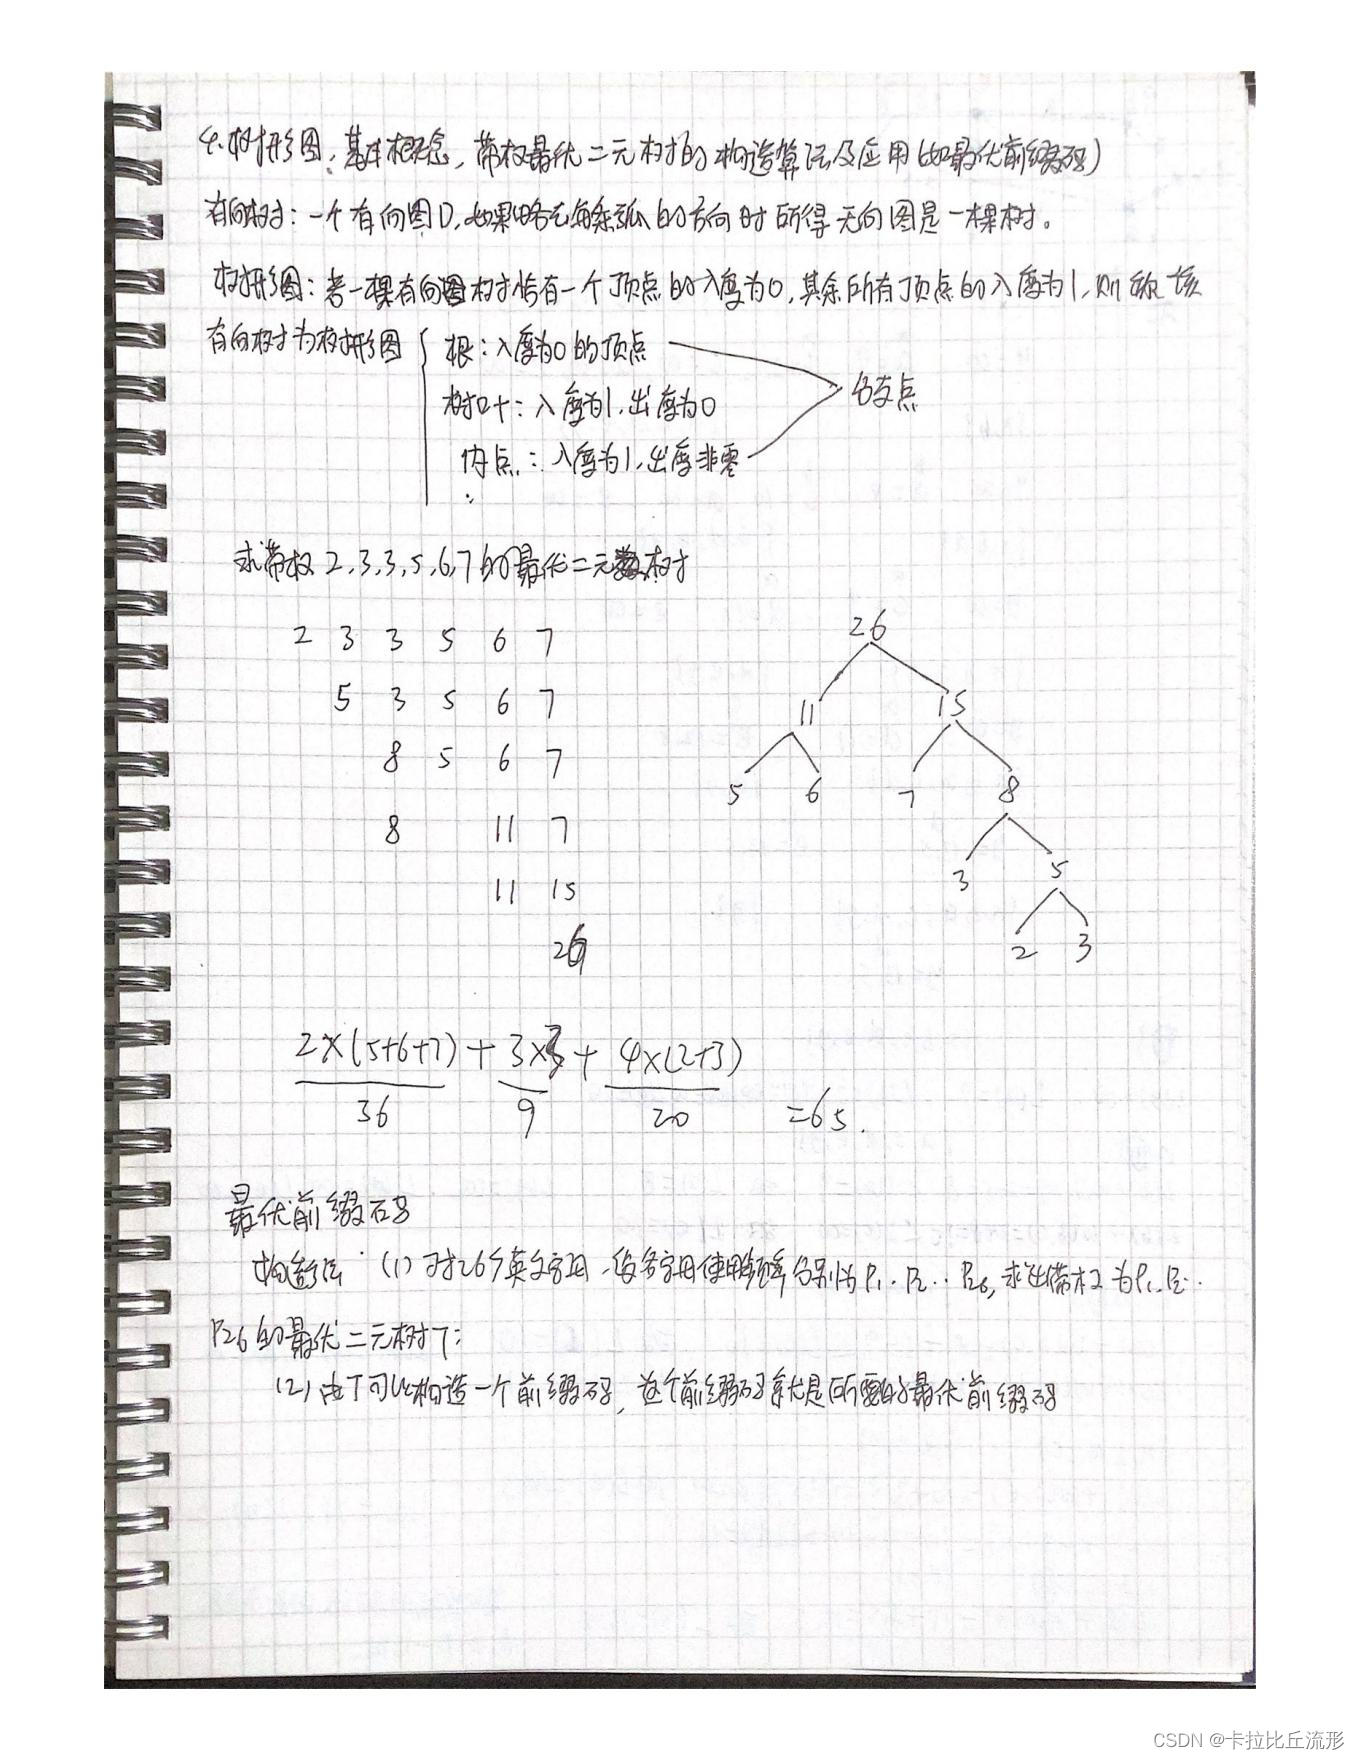 4.树形图:基本概念,带权最优二元树的构造算法及应用(如最优前缀码)
有向树:一个有向图D,如果略去每条弧的方向时所得无向图是一棵树。
树形图:若一棵有向树恰有一个顶点的入度为0,其余所有顶点的入度为1,则称该
有向树为树形图
根:入度为0的顶点
树叶:入度为1,出度为0
分支点
内点:入度为1,出度非零
求带权2,3,3,5,6,7的最优二元树
2 3 3 5 6 7
5 3 5 6 7
8 5 6 7
8 11 7
11 15
26
26
11 15
5 6 7 8
3 5
2 3
2×(5+6+7)+3×3+4×(2+3)
36 9 20 =65.
最优前缀码
构造方法 (1)对26个英文字母,设各字母使用频率分别为P1.P2..P26,求出带权为P1.P2..
P26的最优二元树T;
(2)由T可以构造一个前缀码,这个前缀码就是所要的最优前缀码
CSDN @卡拉比丘流形